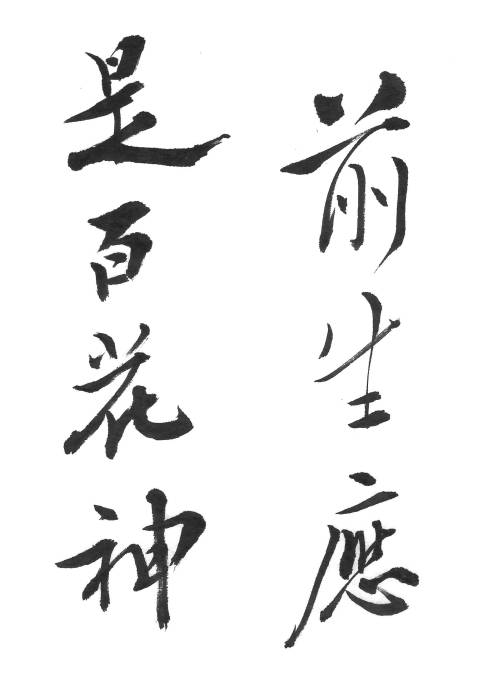 前生應
是百花神